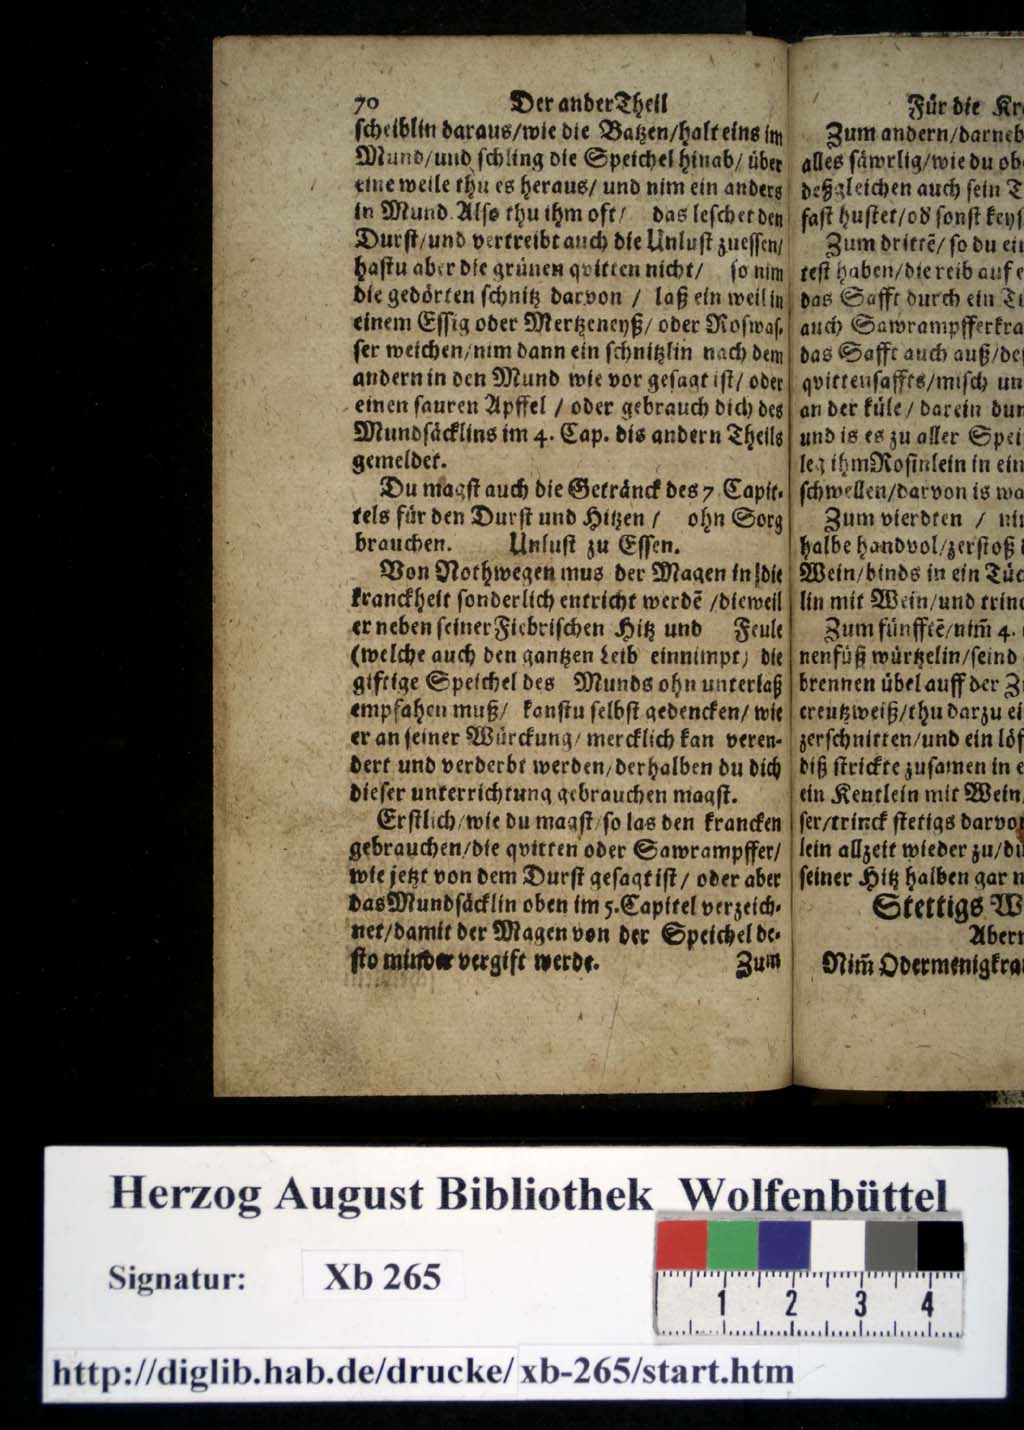 70 Der ander Theil
scheiblin daraus/wie die Batzen/halt eins im
Mund/und schling die Speichel hinab/über
eine weile thu es heraus/ und nim ein anders
in Mund. Also thu ihm oft/ das leschet den
Durst/und vertreibt auch die Unlust zuessen/
hastu aber die grünen qvitten nicht/ so nim
die gedörten schnitz darvon / laß ein weil in
einem Essig oder Mertzeneyß/ oder Roswas-
ser weichen/nim dann ein schnitzlin nach dem
andern in den Mund wie vor gesagt ist/ oder
einen sauren Apffel / oder gebrauch dich des
Mundsäcklins im 4. Cap. dis andern Theils
gemeldet.
Du magst auch die Getränck des 7 Capit-
tels für den Durst und Hitzen / ohn Sorg
brauchen. Unlust zu Essen.
Von Nothwegen mus der Magen in die
kranckheit sonderlich entricht werdē /dieweil
er neben seiner Fiebrischen Hitz und Feule
(welche auch den gantzen Leib einnimpt) die
giftige Speichel des Munds ohn unterlaß
empfahen muß/ kanstu selbst gedencken/ wie
er an seiner Würckung/ mercklich kan veren-
dert und verderbt werden/derhalben du dich
dieser unterrichtung gebrauchen magst.
Erstlich/wie du magst/so las den krancken
gebrauchen/die qvitten oder Sawrampffer/
wie jetzt von dem Durst gesagt ist/ oder aber
das Mundsäcklin oben im 5. Capitel verzeich-
net/damit der Magen von der Speichel de-
sto minder vergift werde. Zum
Für die Kr
Zum andern/darneb
alles säwrlig/wie du ob
deßgleichen auch sein T
fast hustet/od sonst keys
Zum drittē/ so du ein
test haben/die reib auf e
das Safft durch ein Tü
auch Sawrampfferkra
das Safft auch auß/des
qvittensaffts/misch un
an der küle/ darein dun
und is es zu aller Spei
leg ihm Rosinlein in ein
schwellen/darvon is wa
Zum vierdten / nim
halbe handvol/zerstoß
Wein/binds in ein Tüc
lin mit Wein/und trinc
Zum fünfftē/nim̄ 4.
nenfüß würtzelin/seind
brennen übel auff der Z
creutzweiß/thu darzu ei
zerschnitten/und ein löf
diß strickte zusamen in e
ein Kentlein mit Wein/
ser/trinck stetigs darvo
lein allzeit wieder zu/di
seiner Hitz halben gar n
Stettigs W
Abern
Nim̄ Odermenigkrau
Herzog August Bibliothek Wolfenbüttel
Signatur: Xb 265
1 2 3 4
http://diglib.hab.de/drucke/xb-265/start.htm